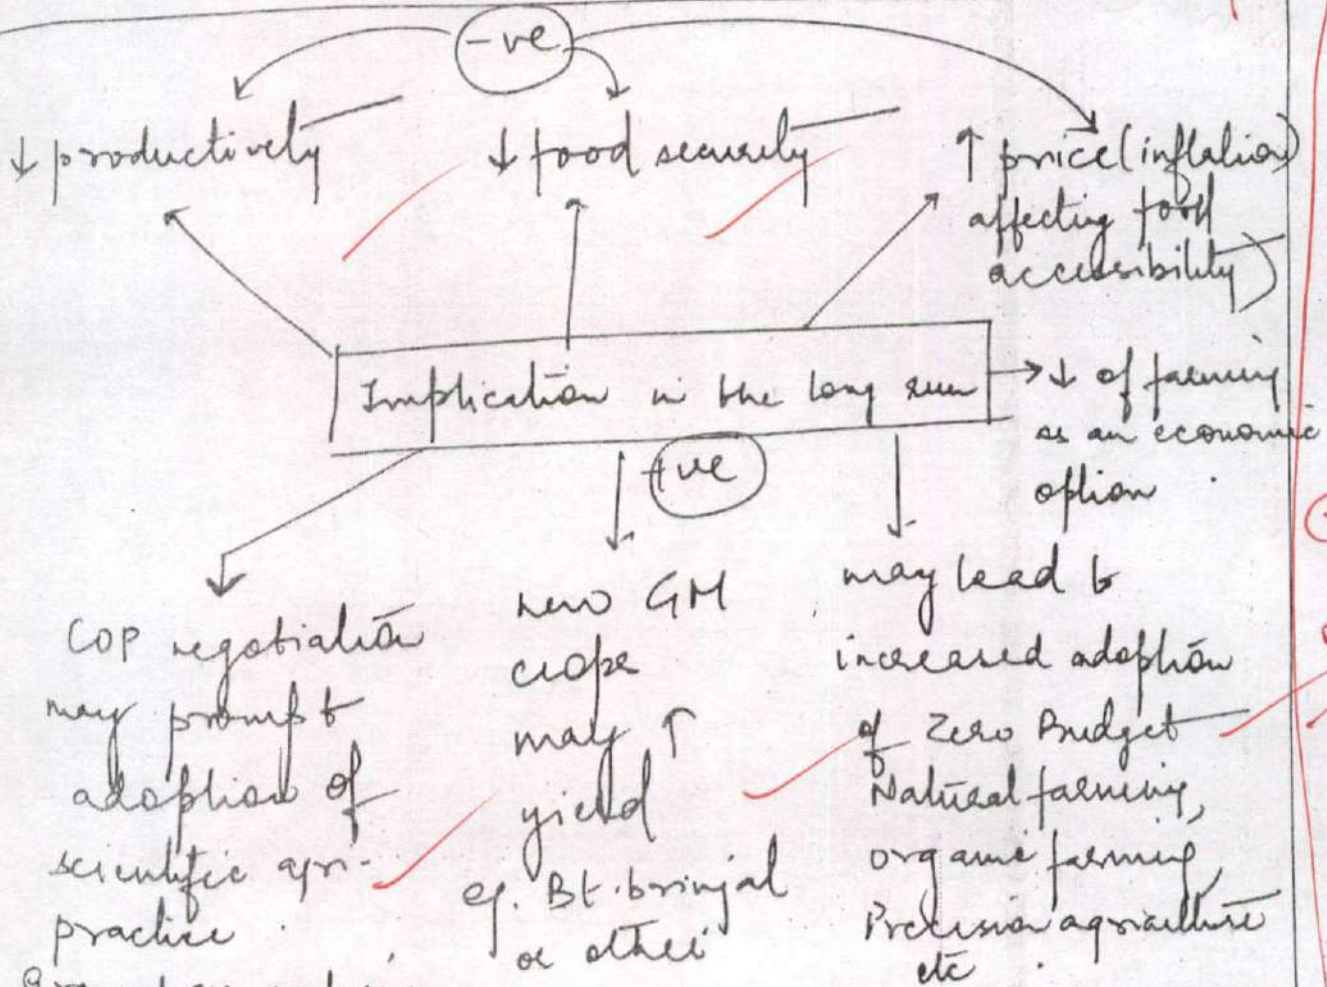 -ve
↓ productively
↓ food security
↑ price (inflation)
affecting food
accessibility)
Implication in the long run
→ ↓ of farming
as an economic
option
+ve
COP negotiation
may prompt
adoption of
scientific agri-
practice
new GM
crops
may ↑
yield
eg. Bt. brinjal
or other
may lead to
increased adoption
of Zero Budget
Natural farming,
organic farming,
Precision agriculture
etc.